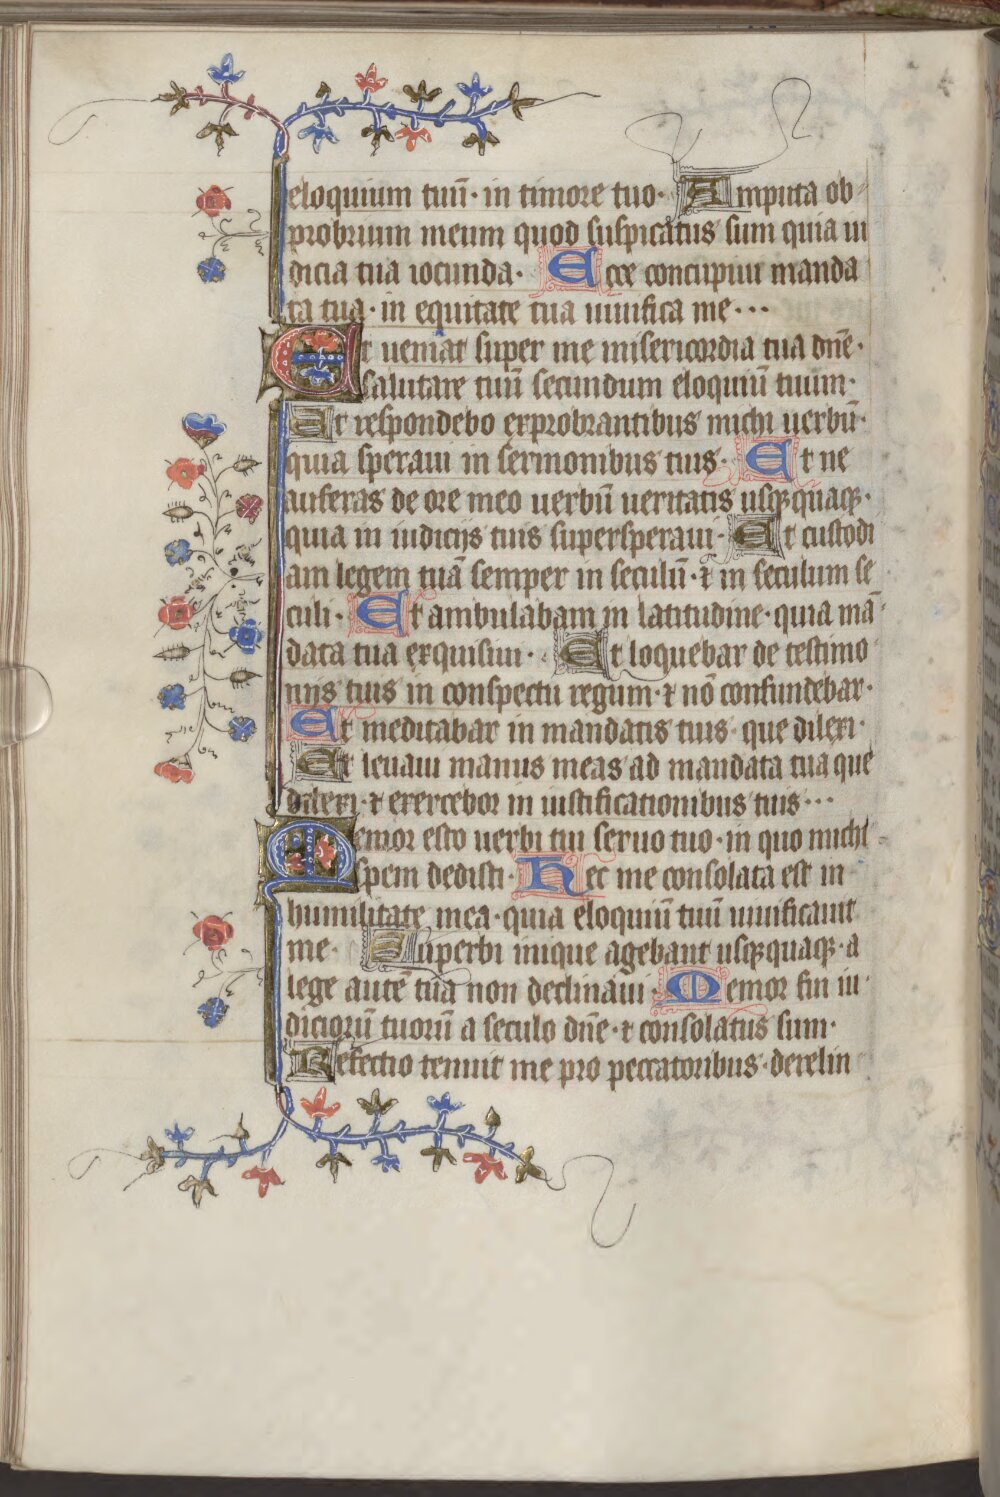 eloquium tuū· in timore tuo· Amputa ob
probrium meum quod suspicatus sum quia iu
dicia tua iocunda· Ecce concupiui manda
ta tua· in equitate tua uiuifica me···
Et ueniat super me misericordia tua dn̄e·
salutare tuū secundum eloquiū tuum·
Et respondebo exprobrantibus michi uerbū·
quia speraui in sermonibus tuis· Et ne
auferas de ore meo uerbū ueritatis usqꝫquaqꝫ·
quia in iudicijs tuis supersperaui· Et custodi
am legem tuā semper in seculū· ⁊ in seculum se
culi· Et ambulabam in latitudine· quia mā
data tua exquisiui· Et loquebar de testimo
niis tuis in conspectu regum· ⁊ nō confundebar·
Et meditabar in mandatis tuis· que dilexi·
Et leuaui manus meas ad mandata tua que
dilexi· ⁊ exercebor in iustificationibus tuis···
Memor esto uerbi tui seruo tuo· in quo michi
spem dedisti· Hec me consolata est in
humilitate mea· quia eloquiū tuū uiuificauit
me· Superbi inique agebant usqꝫquaqꝫ· a
lege autē tua non declinaui· Memor fui iu
diciorū tuorū a seculo dn̄e· ⁊ consolatus sum·
Defectio tenuit me pro peccatoribus· derelin